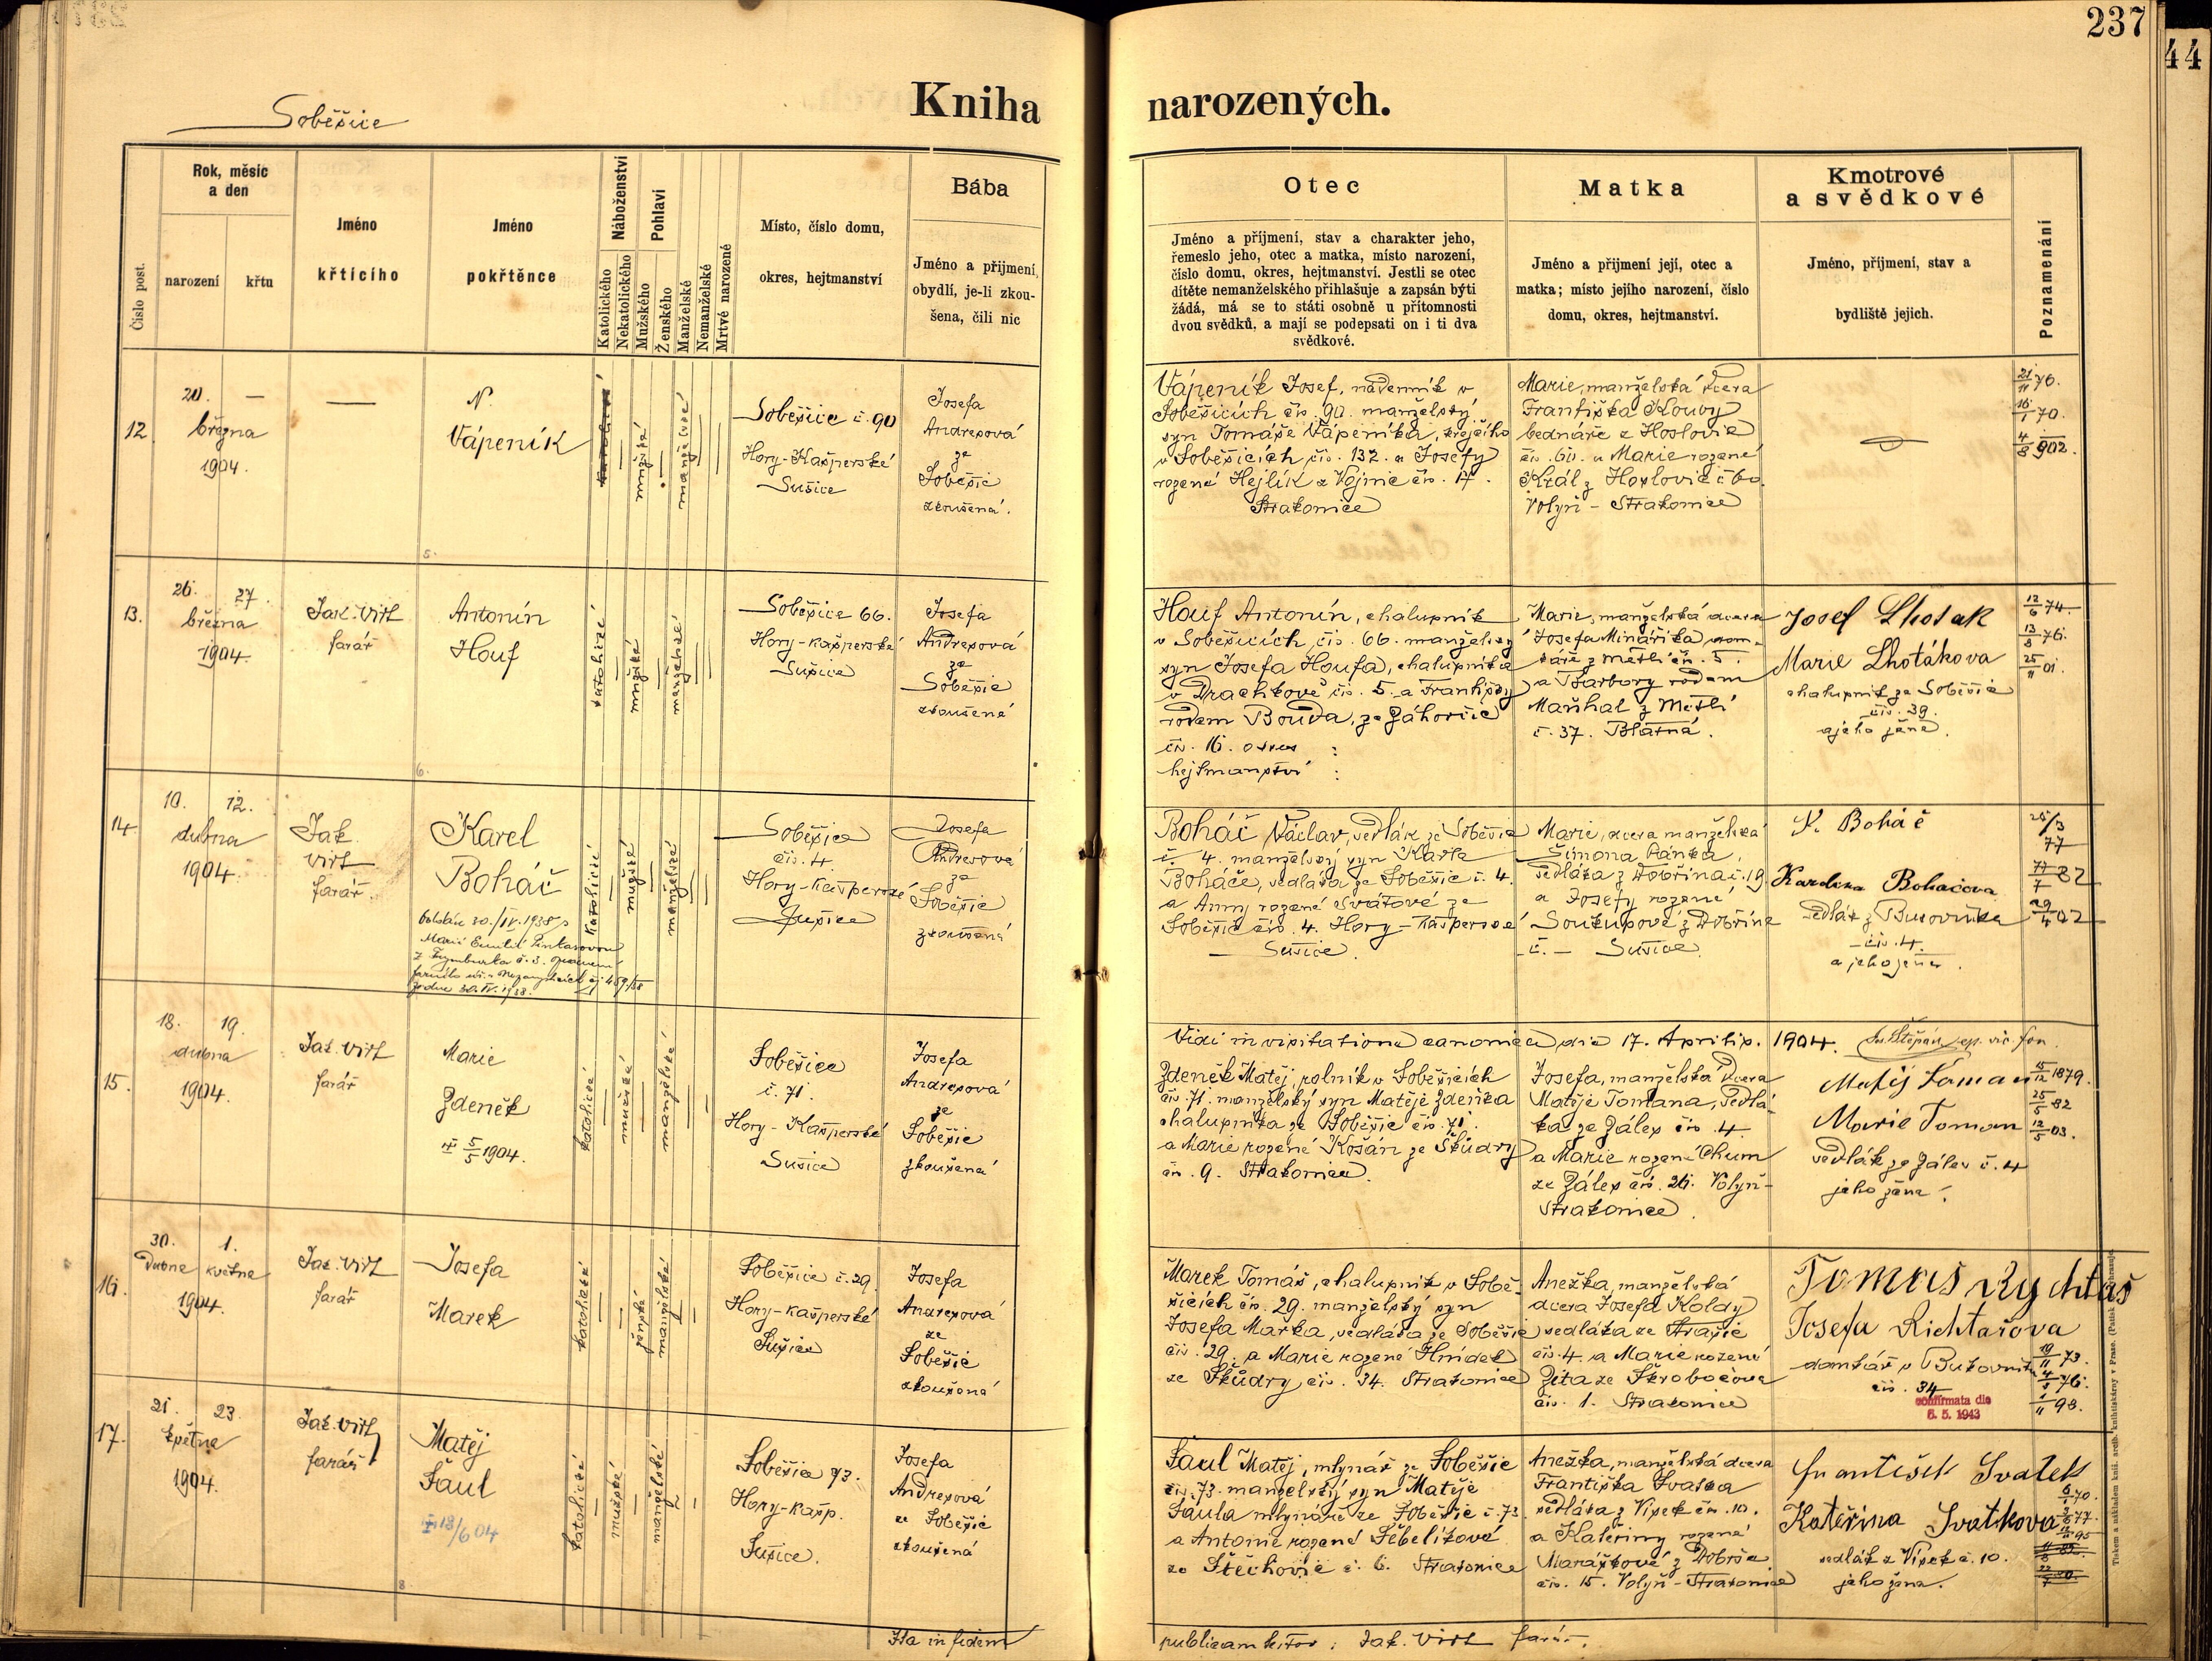 237
44
Soběšice
Kniha narozených.
Číslo post.
Rok, měsíc
a den
narození
křtu
Jméno
křtícího
Jméno
pokřtěnce
Náboženství
Katolického
Nekatolického
Pohlaví
Mužského
Ženského
Manželské
Nemanželské
Mrtvě narozené
Místo, číslo domu,
okres, hejtmanství
Bába
Jméno a přijmení,
obydlí, je-li zkou-
šena, čili nic
Otec
Jméno a příjmení, stav a charakter jeho,
řemeslo jeho, otec a matka, místo narození,
číslo domu, okres, hejtmanství. Jestli se otec
dítěte nemanželského přihlašuje a zapsán býti
žádá, má se to státi osobně u přítomnosti
dvou svědků, a mají se podepsati on i ti dva
svědkové.
Matka
Jméno a přijmení její, otec a
matka; místo jejího narození, číslo
domu, okres, hejtmanství.
Kmotrové
a svědkové
Jméno, příjmení, stav a
bydliště jejich.
Poznamenání
12
20. —
března
1904.
—
N.
Vápeník
katolické
mužské
manželské
Soběšice č. 90
Hory-Kašperské
Sušice
Josefa
Andresová
ze
Soběšic
zkoušená.
Vápeník Josef, nádenník v
Soběšicích čís. 90. manželský
syn Tomáše Vápeníka, krejčího
v Soběšicích čís. 132. a Josefy
rozené Hejlík z Vojnic čís. 17.
Strakonice
Marie, manželská dcera
Františka Kouby
bednáře z Hoslovic
čís. 60. a Marie rozené
Král z Hoslovic č. 60.
Volyň - Strakonice
21/11 76.
16/1 70.
4/8 902.
5.
13.
26. 27.
března
1904.
Jak. Virt
farář
Antonín
Houf
katolické
mužské
manželské
Soběšice 66.
Hory-Kašperské
Sušice
Josefa
Andresová
ze
Soběšic
zkoušená
Houf Antonín, chalupník
v Soběšicích, čís. 66. manželský
syn Josefa Houfa, chalupníka
v Drachkově čís. 5. a Františky
rodem Bouda, ze Záhorčic
čís. 16. okres :
hejtmanství :
Marie, manželská dcera
Josefa Mináříka dom-
káře z Měčtli čís. 5.
a Barbory rodem
Maňhal z Měčtlí
č. 37. Blatná.
Josef Lhoták
Marie Lhotákova
chalupník ze Soběšic
čís. 39.
a jeho žena.
12/6 74.
13/8 76.
25/11 01.
6.
14.
10. 12.
dubna
1904.
Jak.
Virt
farář.
Karel
Boháč
oddán 30./IV. 1938 s
Marií Emilií
z č. 3.
ze dne 30. IV. 1938.
katolické
mužské
manželské
Soběšice
čís. 4
Hory-Kašperské
Sušice
Josefa
Andresová
ze
Soběšic
zkoušená
Boháč Václav, sedlák ze Soběšic
č. 4. manželský syn Karla
Boháče, sedláka ze Soběšic č. 4.
a Anny rozené Svátové ze
Soběšic čís. 4. Hory-Kašperské
Sušice.
Marie, dcera manželská
Šimona Pánka,
sedláka z Dobřína č. 19.
a Josefy rozené
Soukupové z Dobřína
č. — Sušice.
K. Boháč
Karolina Boháčova
sedlák z Bukovníka
čís. 4.
a jeho žena.
25/3
77
17/7 82
29/4 02
Vidi in visitatione canonica die 17. Aprilis. 1904.
15.
18. 19.
dubna
1904.
Jak. Virt
farář
Marie
Zdeněk
5/5 1904.
katolické
mužské
manželské
Soběšice
č. 71.
Hory-Kašperské
Sušice
Josefa
Andresová
ze
Soběšic
zkoušená
Zdeněk Matěj, rolník v Soběšicích
čís. 71. manželský syn Matěje Zdeňka
chalupníka ze Soběšic čís. 71.
a Marie rozené Košán ze Škůdry
čís. 9. Strakonice.
Josefa, manželská dcera
Matěje Tomana, sedlá-
ka ze Záles čís. 4.
a Marie rozené Chum
ze Zález čís. 26. Volyň-
Strakonice.
Matěj Toman
Marie Toman
sedlák ze Zález č. 4
jeho žena.
15/12 1879.
25/5 82
12/5 03.
16.
30. 1.
dubna května
1904.
Jak. Virt
farář
Josefa
Marek
katolické
ženské
manželské
Soběšice č. 29.
Hory-Kašperské
Sušice
Josefa
Andresová
ze
Soběšic
zkoušená
Marek Tomáš, chalupník v Sobě-
šicích čís. 29. manželský syn
Josefa Marka, sedláka ze Soběšic
čís. 29. a Marie rozené Hnídek
ze Škůdry čís. 34. Strakonice
Anežka, manželská
dcera Josefa Koldy
sedláka ze Strašic
čís. 4. a Marie rozené
Zíta ze Škrobočova
čís. 1. Strakonice
Tomáš Rychtář
Josefa Richtařova
domkář v Bukovníku
čís. 34
confirmata die
6. 5. 1943
19/11 73.
4/1 76.
1/11 98.
17.
21. 23.
května
1904.
Jak. Virt
farář
Matěj
Šaul
18/6 04
katolické
mužské
manželské
Soběšice 73.
Hory-Kašp.
Sušice.
Josefa
Andresová
ze Soběšic
zkoušená
Šaul Matěj, mlynář ze Soběšic
čís. 73. manželský syn Matěje
Šaula mlynáře ze Soběšic č. 73
a Antonie rozené Šebelíkové
ze Štěchovic č. 6. Strakonice
Anežka, manželská dcera
Františka Svatka
sedláka z Vísek čís. 10.
a Kateřiny rozené
Maráškové z Dobrše
čís. 15. Volyň-Strakonice
František Svatek
Kateřina Svatkova
sedlák z Vísek č. 10.
jeho žena.
8
Ita in fidem publicam testor: Jak. Virt farář.